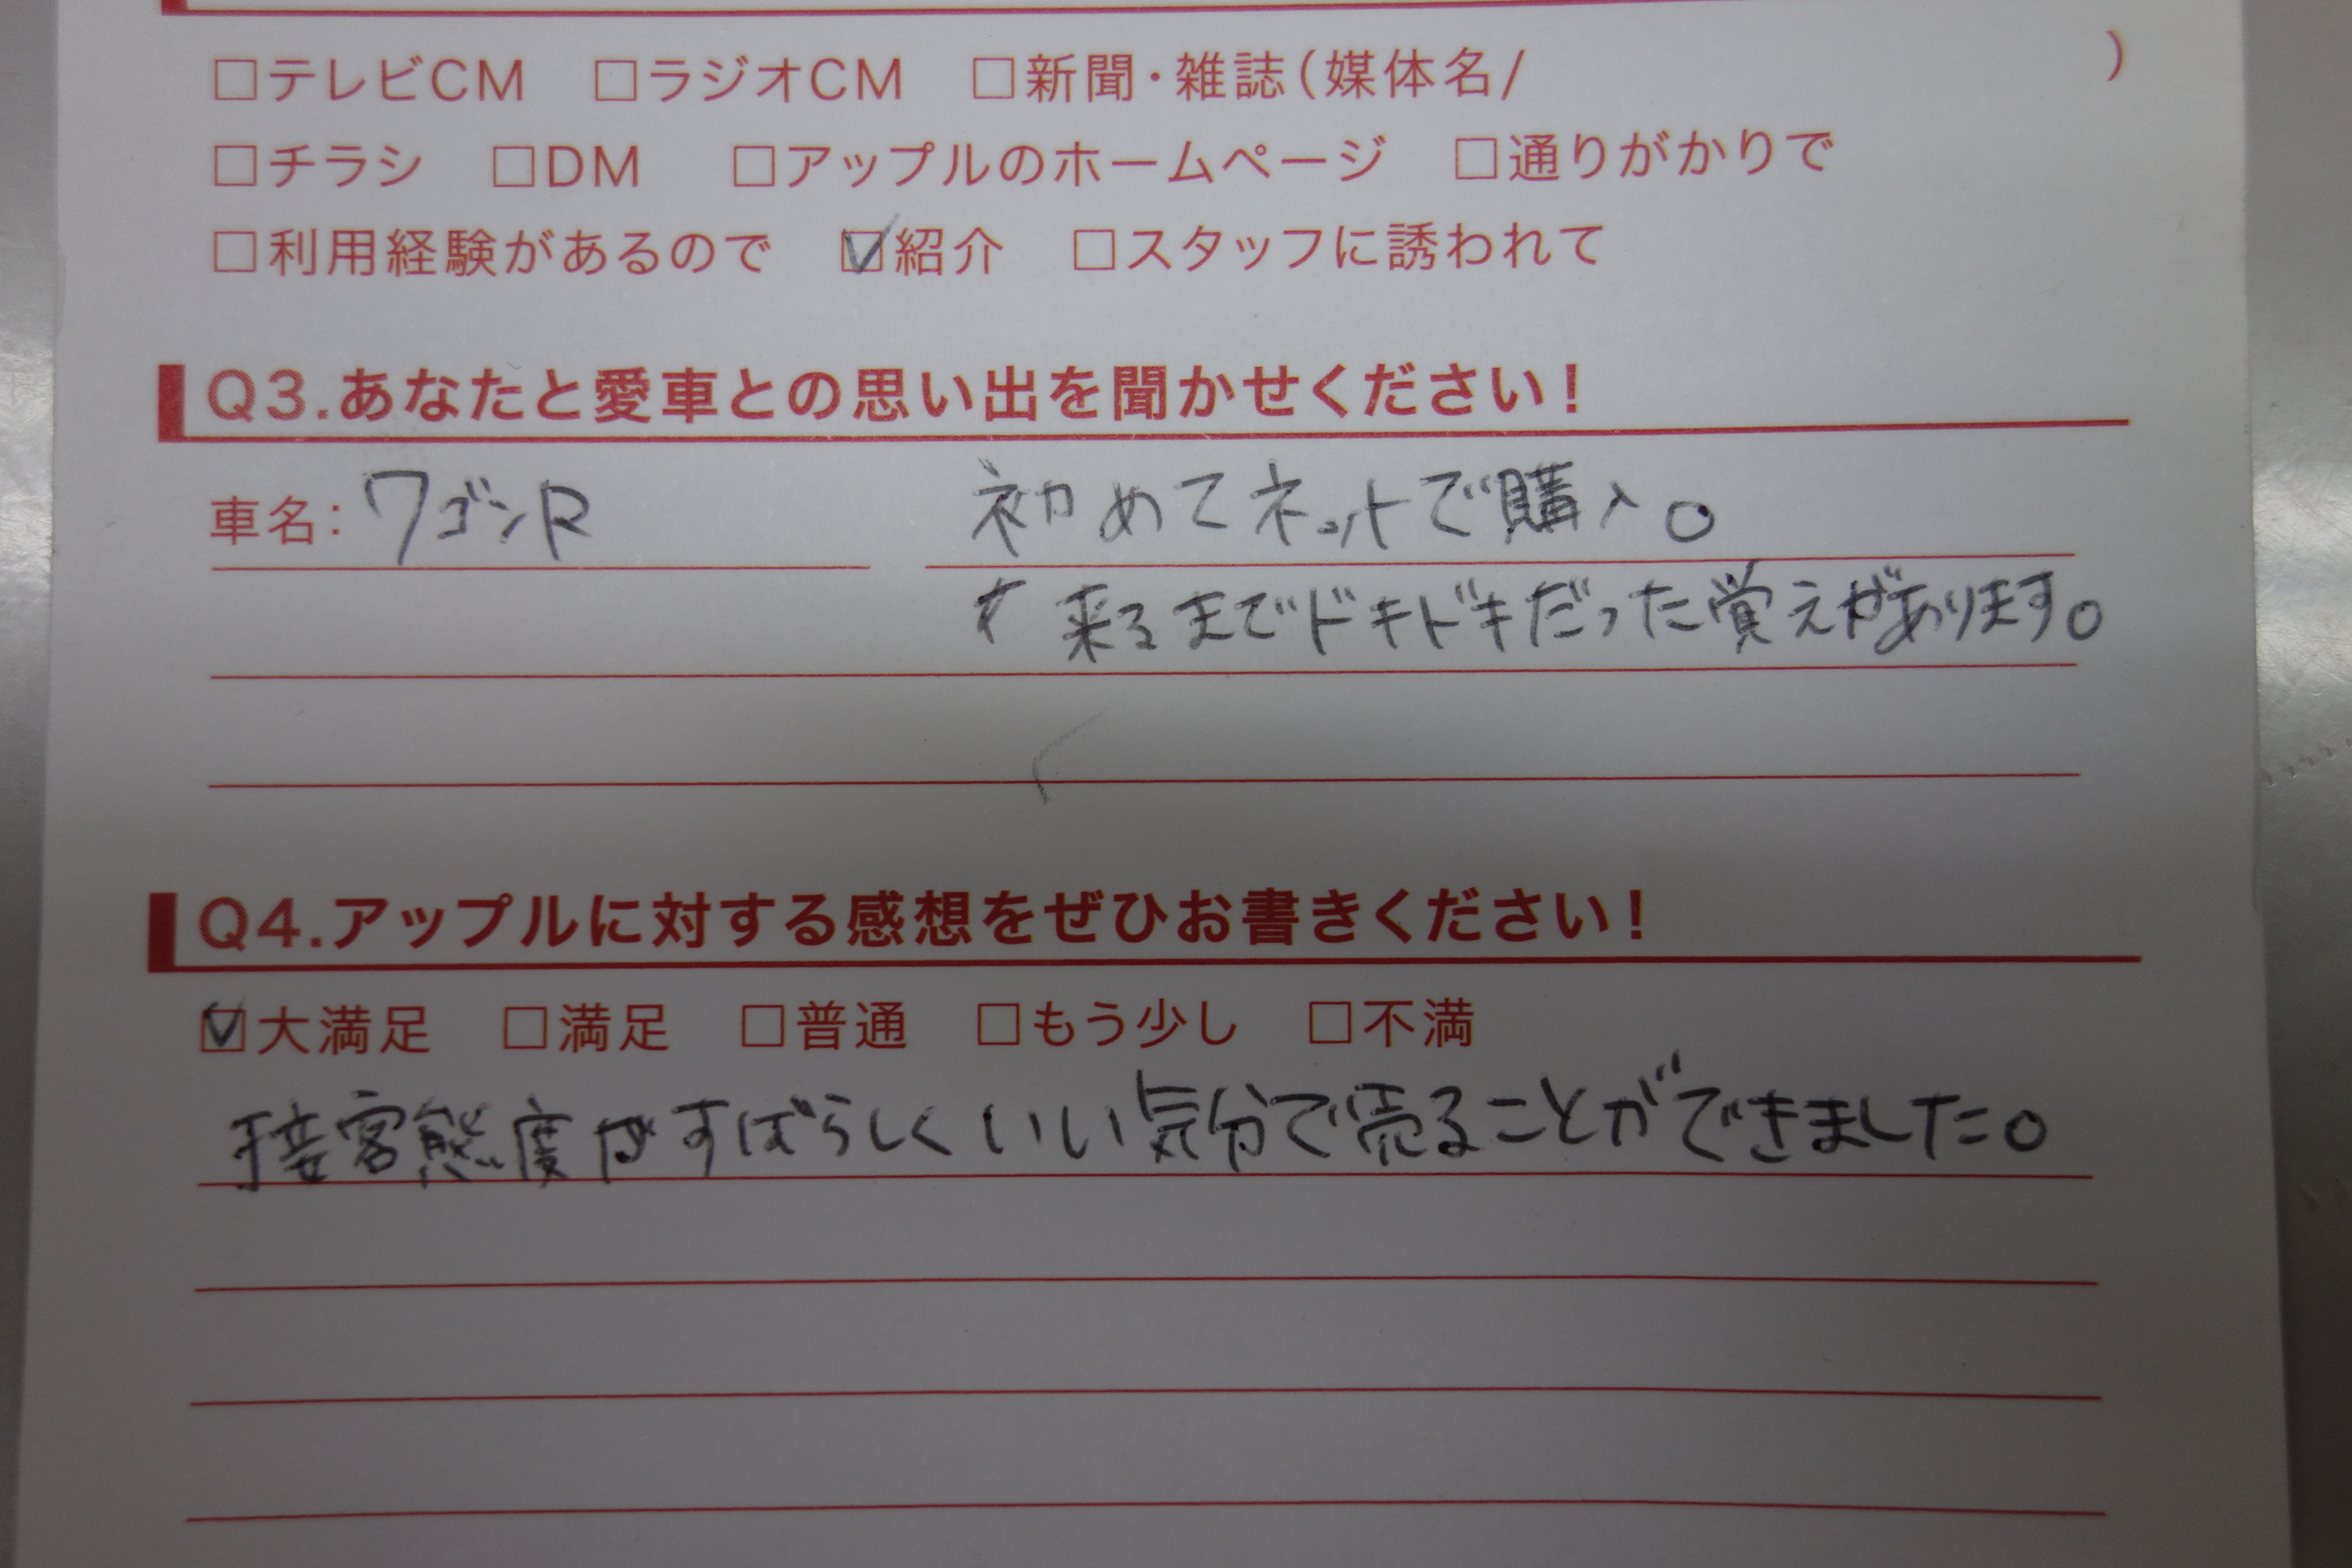 □テレビCM □ラジオCM □新聞・雑誌(媒体名/ )
□チラシ □DM □アップルのホームページ □通りがかりで
□利用経験があるので ☑紹介 □スタッフに誘われて
Q3.あなたと愛車との思い出を聞かせください!
車名:ワゴンR 初めてネットで購入。
来るまでドキドキだった覚えがあります。
Q4.アップルに対する感想をぜひお書きください!
☑大満足 □満足 □普通 □もう少し □不満
接客態度がすばらしくいい気分で売ることができました。